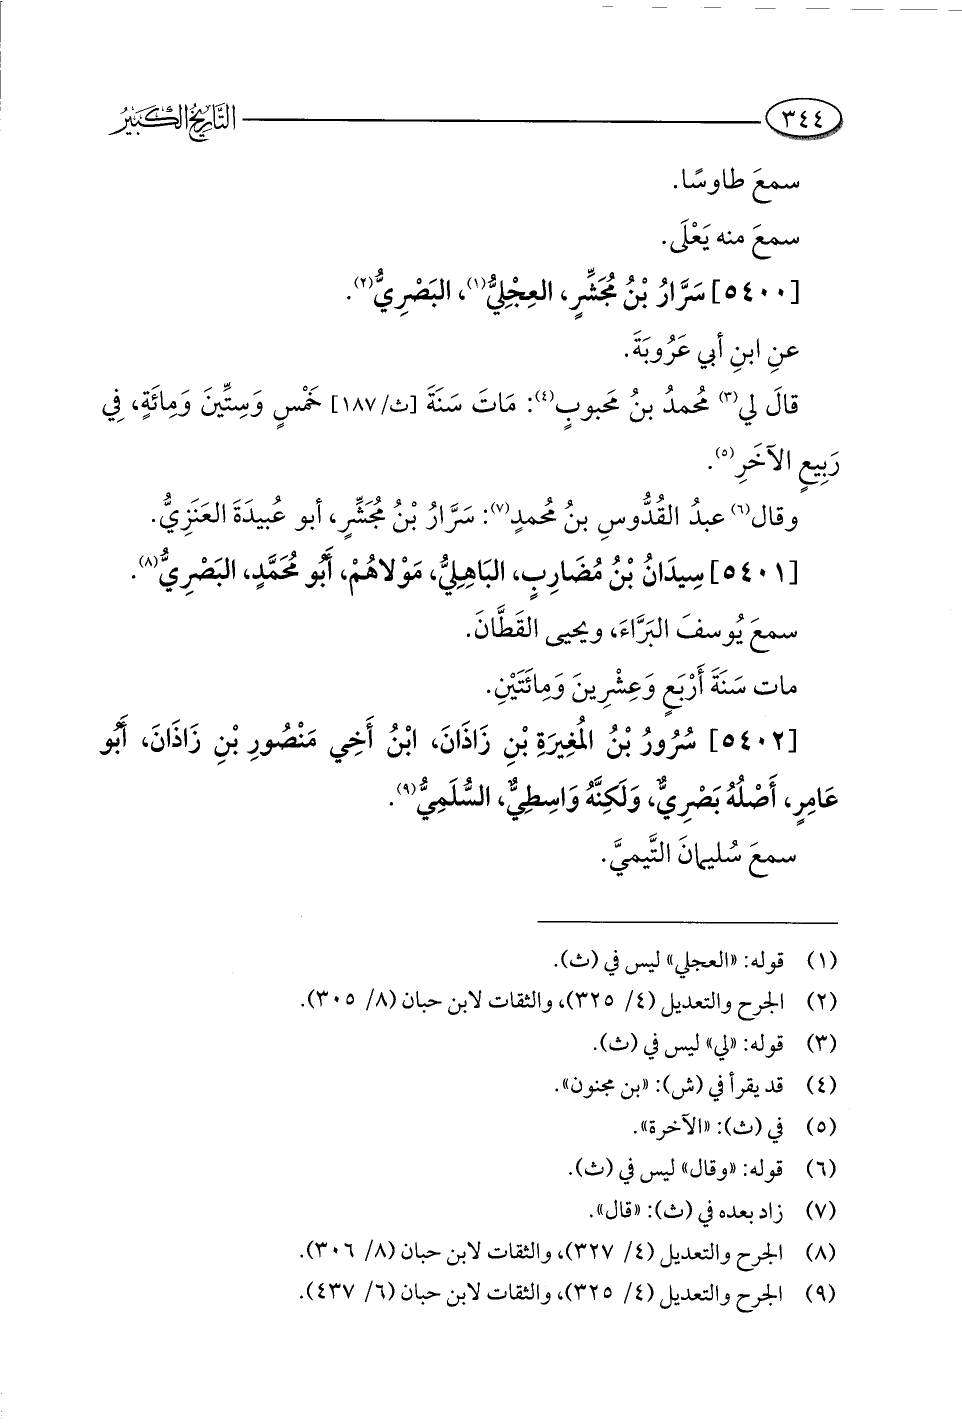 ٣٤٤ التَّارِيخُ الكَبِيرُ
سمعَ طاوسًا.
سمعَ منه يَعْلَى.
[٥٤٠٠] سَرَّارُ بْنُ مُجَشِّرٍ، العِجْلِيُّ(١)، البَصْرِيُّ(٢).
عنِ ابنِ أبي عَرُوبَةَ.
قالَ لي(٣) مُحمدُ بنُ مَحبوبٍ(٤): مَاتَ سَنَةَ [ث/١٨٧] خَمْسٍ وَسِتِّينَ وَمِائَةٍ، فِي
رَبِيعٍ الآخَرِ(٥).
وقال(٦) عبدُ القُدُّوسِ بنُ مُحمدٍ(٧): سَرَّارُ بْنُ مُجَشِّرٍ، أبو عُبيدَةَ العَنَزِيُّ.
[٥٤٠١] سِيدَانُ بْنُ مُضَارِبٍ، البَاهِلِيُّ، مَوْلاهُمْ، أَبُو مُحَمَّدٍ، البَصْرِيُّ(٨).
سمعَ يُوسفَ البَرَّاءَ، ويحيى القَطَّانَ.
مات سَنَةَ أَرْبَعٍ وَعِشْرِينَ وَمِائَتَيْنِ.
[٥٤٠٢] سُرُورُ بْنُ المُغِيرَةِ بْنِ زَاذَانَ، ابْنُ أَخِي مَنْصُورِ بْنِ زَاذَانَ، أَبُو
عَامِرٍ، أَصْلُهُ بَصْرِيٌّ، وَلَكِنَّهُ وَاسِطِيٌّ، السُّلَمِيُّ(٩).
سمعَ سُليمانَ التَّيميَّ.
(١) قوله: «العجلي» ليس في (ث).
(٢) الجرح والتعديل (٤/ ٣٢٥)، والثقات لابن حبان (٨/ ٣٠٥).
(٣) قوله: «لي» ليس في (ث).
(٤) قد يقرأ في (ش): «بن مجنون».
(٥) في (ث): «الآخرة».
(٦) قوله: «وقال» ليس في (ث).
(٧) زاد بعده في (ث): «قال».
(٨) الجرح والتعديل (٤/ ٣٢٧)، والثقات لابن حبان (٨/ ٣٠٦).
(٩) الجرح والتعديل (٤/ ٣٢٥)، والثقات لابن حبان (٦/ ٤٣٧).